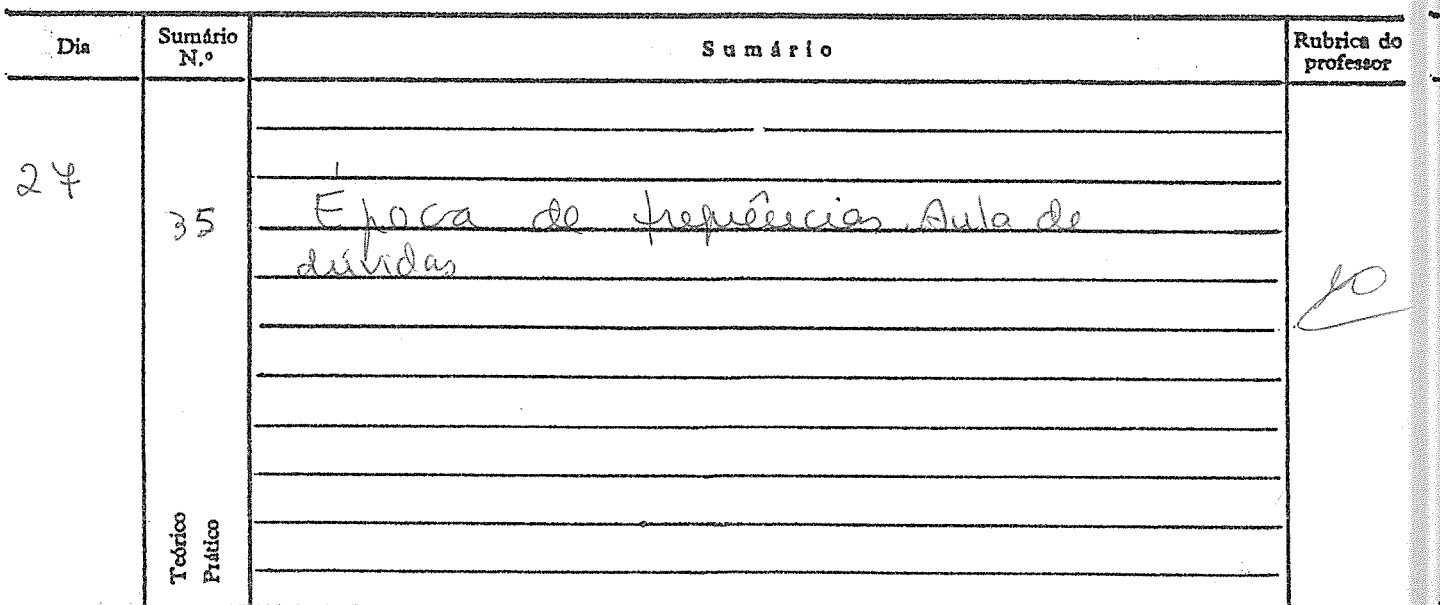 Dia
Sumário
N.º
Sumário
Rubrica do
professor
27
35
Época de frequências. Aula de
dúvidas
Teórico
Prático